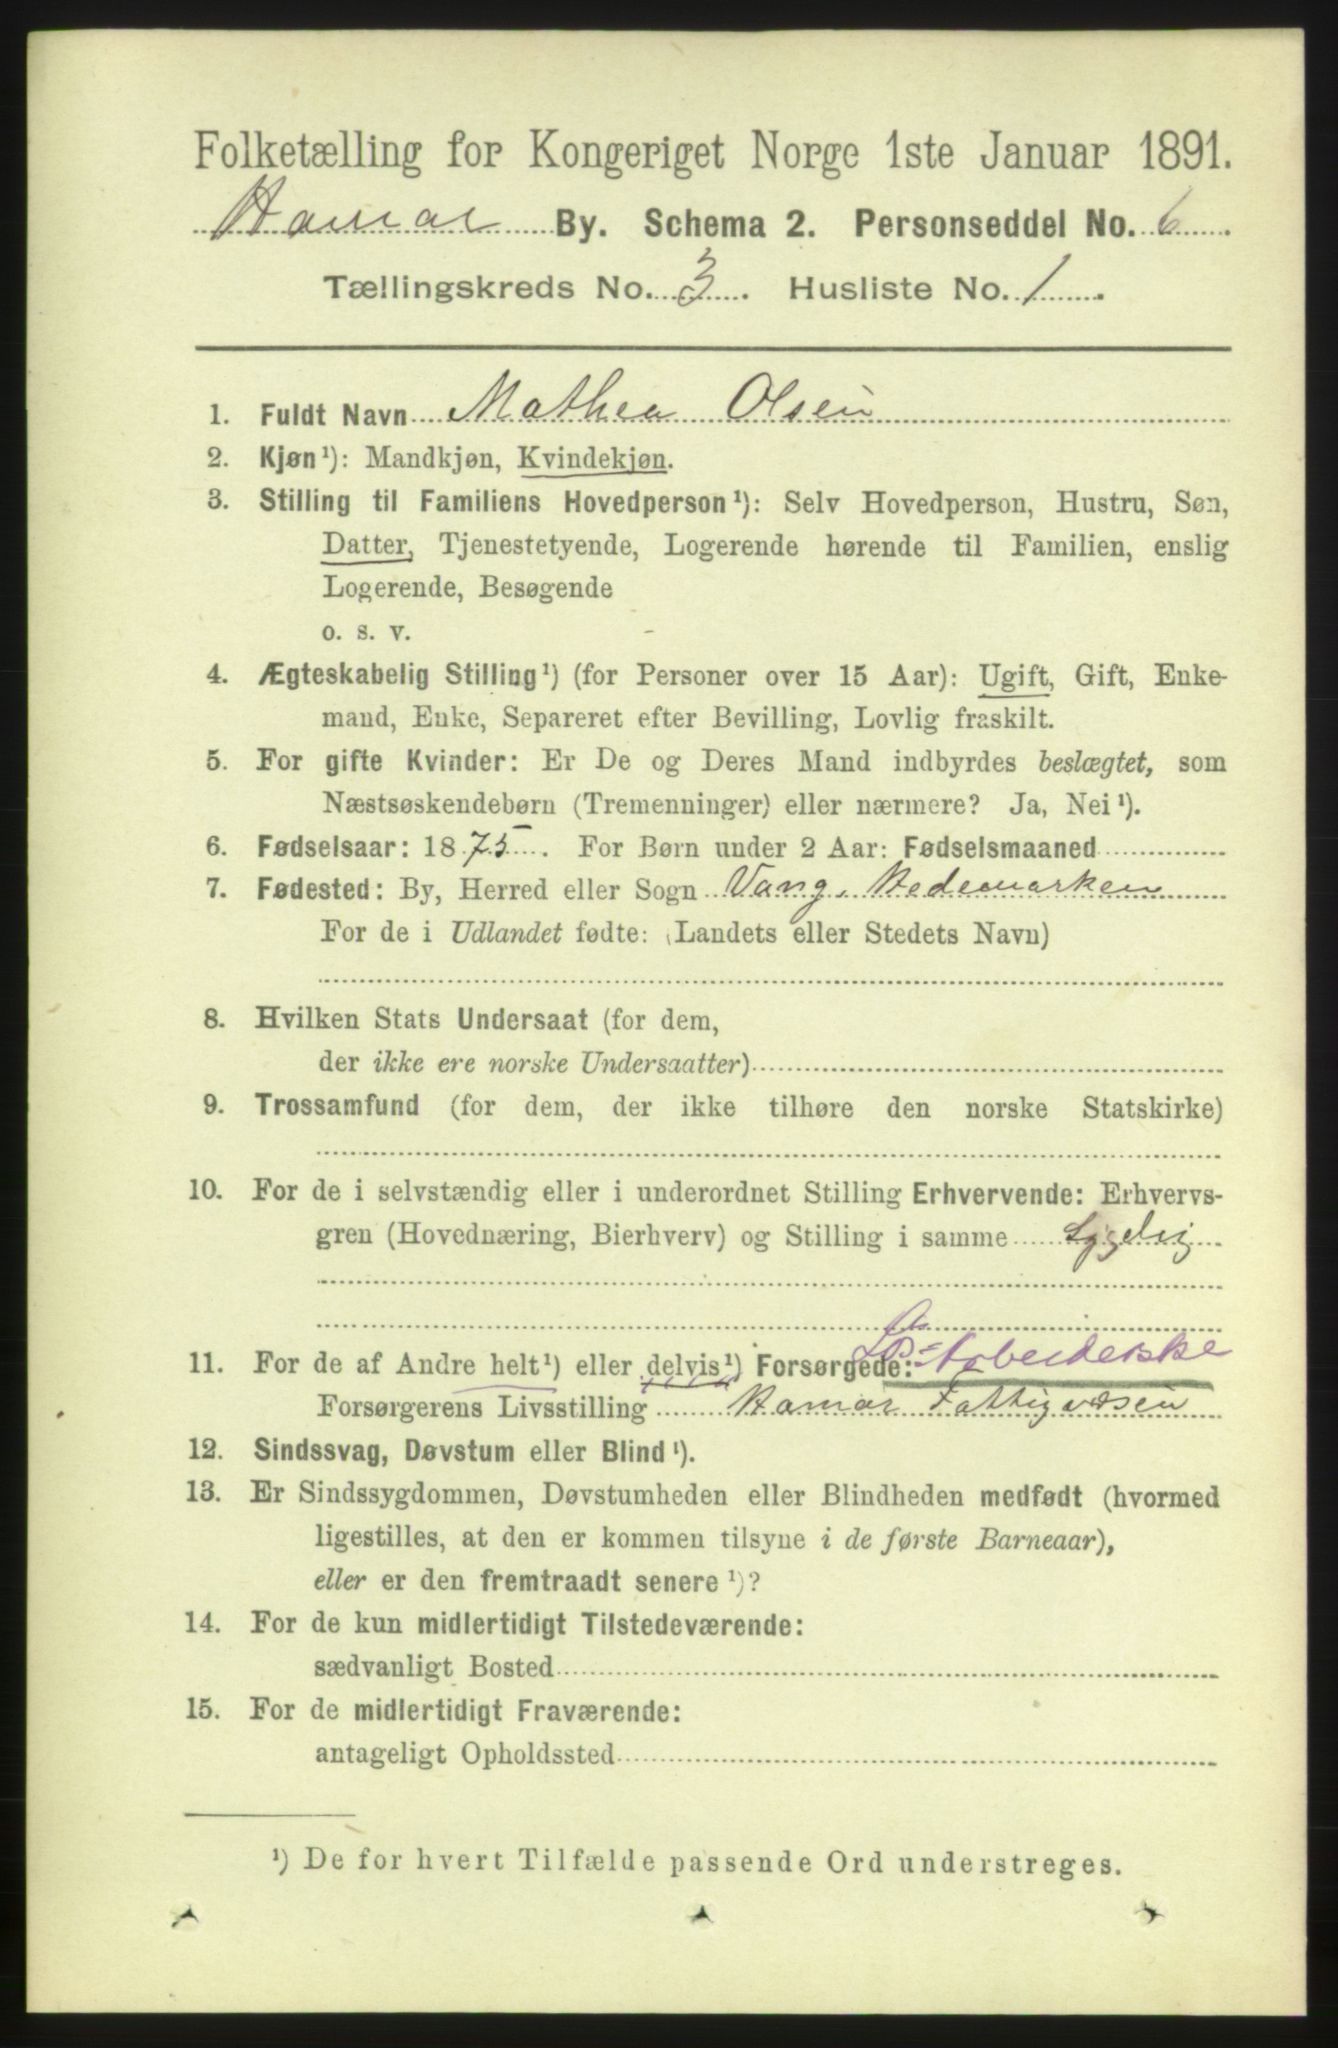 Folketælling for Kongeriget Norge 1ste Januar 1891.
Hamar By. Schema 2. Personseddel No. 6.
Tællingskreds No. 3. Husliste No. 1.
1. Fuldt Navn Mathea Olsen
2. Kjøn¹): Mandkjøn, Kvindekjøn.
3. Stilling til Familiens Hovedperson¹): Selv Hovedperson, Hustru, Søn,
Datter, Tjenestetyende, Logerende hørende til Familien, enslig
Logerende, Besøgende
o. s. v.
4. Ægteskabelig Stilling¹) (for Personer over 15 Aar): Ugift, Gift, Enke-
mand, Enke, Separeret efter Bevilling, Lovlig fraskilt.
5. For gifte Kvinder: Er De og Deres Mand indbyrdes beslægtet, som
Næstsøskendebørn (Tremenninger) eller nærmere? Ja, Nei¹).
6. Fødselsaar: 1875. For Børn under 2 Aar: Fødselsmaaned
7. Fødested: By, Herred eller Sogn Vang, Hedemarken
For de i Udlandet fødte: (Landets eller Stedets Navn)
8. Hvilken Stats Undersaat (for dem,
der ikke ere norske Undersaatter)
9. Trossamfund (for dem, der ikke tilhøre den norske Statskirke)
10. For de i selvstændig eller i underordnet Stilling Erhvervende: Erhvervs-
gren (Hovednæring, Bierhverv) og Stilling i samme Sygelig
11. For de af Andre helt¹) eller delvis¹) Forsørgede: Arbeiderske
Forsørgerens Livsstilling Hamar Fattigvæsen
12. Sindssvag, Døvstum eller Blind¹).
13. Er Sindssygdommen, Døvstumheden eller Blindheden medfødt (hvormed
ligestilles, at den er kommen tilsyne i de første Barneaar),
eller er den fremtraadt senere¹)?
14. For de kun midlertidigt Tilstedeværende:
sædvanligt Bosted
15. For de midlertidigt Fraværende:
antageligt Opholdssted
¹) De for hvert Tilfælde passende Ord understreges.